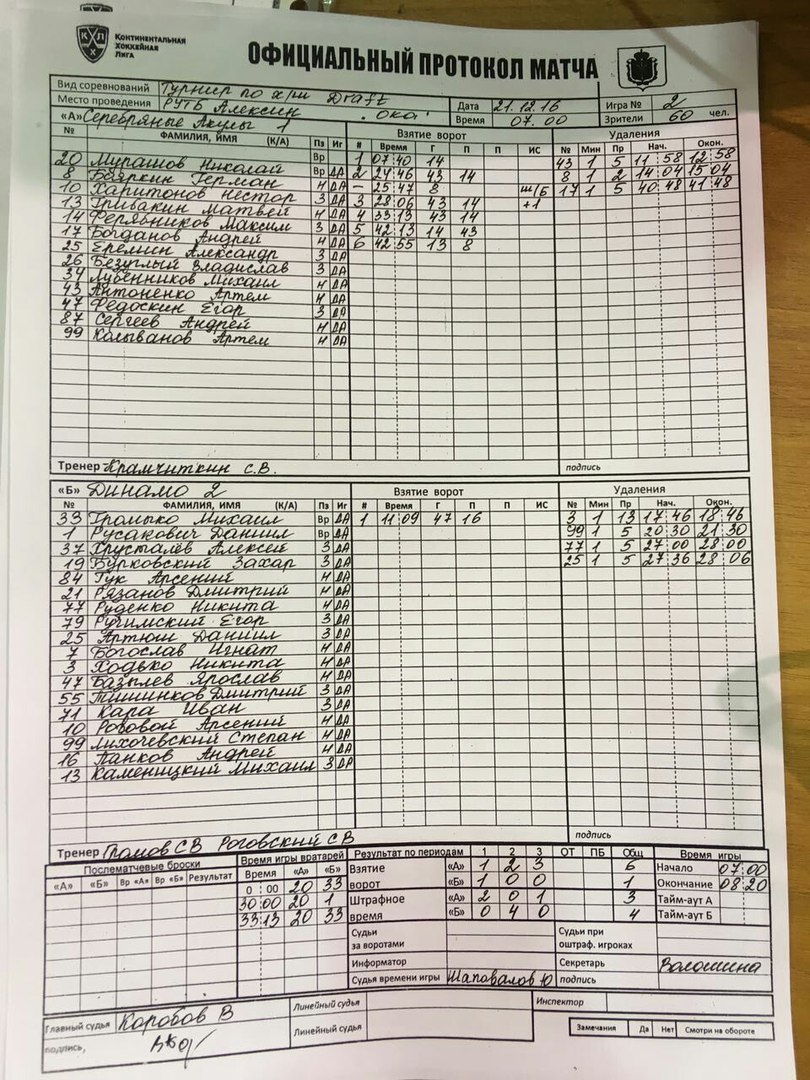 КОНТИНЕНТАЛЬНАЯ
ХОККЕЙНАЯ
ЛИГА
КХЛ
ОФИЦИАЛЬНЫЙ ПРОТОКОЛ МАТЧА
Вид соревнований Турнир по х/ш Draft
Место проведения РУТБ Алексин "Ока" Дата 21.12.16 Игра № 2
«А» Серебряные Акулы 1 Время 07.00 Зрители 60 чел.
№ ФАМИЛИЯ, ИМЯ (К/А) Пз Иг Взятие ворот Удаления
# Время Г П П ИС № Мин Пр Нач. Окон.
20 Мурашов Николай Вр 1 07:40 14 43 1 5 11:58 12:58
8 Бояркин Герман Н ДА 2 24:46 43 14 8 1 2 14:04 15:04
10 Харитонов Нестор Н ДА – 25:47 8 ш/Б 17 1 5 40:48 41:48
13 Тривакин Матвей З ДА 3 28:06 43 14 +1
14 Ферявников Максим Н ДА 4 33:13 43 14
17 Богданов Андрей З ДА 5 42:13 14 43
25 Еремин Александр Н ДА 6 42:55 13 8
26 Безуглый Владислав З ДА
34 Лубенников Михаил З ДА
43 Антоненко Артем Н ДА
47 Федоскин Егор З ДА
87 Сергеев Андрей Н ДА
99 Колыванов Артем Н ДА
Тренер Крамчиткин С.В. подпись
«Б» Динамо 2 Взятие ворот Удаления
№ ФАМИЛИЯ, ИМЯ (К/А) Пз Иг # Время Г П П ИС № Мин Пр Нач. Окон.
33 Громыко Михаил Вр ДА 1 11:09 47 16 3 1 13 17:46 18:46
1 Русакович Даниил Вр ДА 99 1 5 20:30 21:30
37 Хрусталёв Алексей З ДА 77 1 5 27:00 28:00
19 Бурковский Захар З ДА 25 1 5 27:36 28:06
84 Гук Арсений Н ДА
21 Рязанов Дмитрий Н ДА
77 Руденко Никита Н ДА
79 Ручимский Егор З ДА
25 Артюш Даниил З ДА
7 Богослав Игнат Н ДА
3 Ходько Никита Н ДА
47 Базылев Ярослав Н ДА
55 Тишинков Дмитрий З ДА
71 Кара Иван З ДА
10 Роговой Арсений Н ДА
99 Лихочевский Степан Н ДА
16 Панков Андрей Н ДА
13 Каменицкий Михаил З ДА
подпись
Тренер Громов С В Роговский С В
Послематчевые броски Время игры вратарей Результат по периодам 1 2 3 ОТ ПБ Общ Время игры
«А» «Б» Вр «А» Вр «Б» Результат Время «А» «Б» Взятие ворот «А» 1 2 3 6 Начало 07:00
0:00 20 33 «Б» 1 0 0 1 Окончание 08:20
30:00 20 1 Штрафное время «А» 2 0 1 3 Тайм-аут А
33:13 20 33 «Б» 0 4 0 4 Тайм-аут Б
Судьи за воротами Судьи при оштраф. игроках
Информатор Секретарь Волошина
Судья времени игры Шаповалов Ю подпись
Главный судья Коробов В Линейный судья Инспектор
подпись, Линейный судья Замечания Да Нет Смотри на обороте